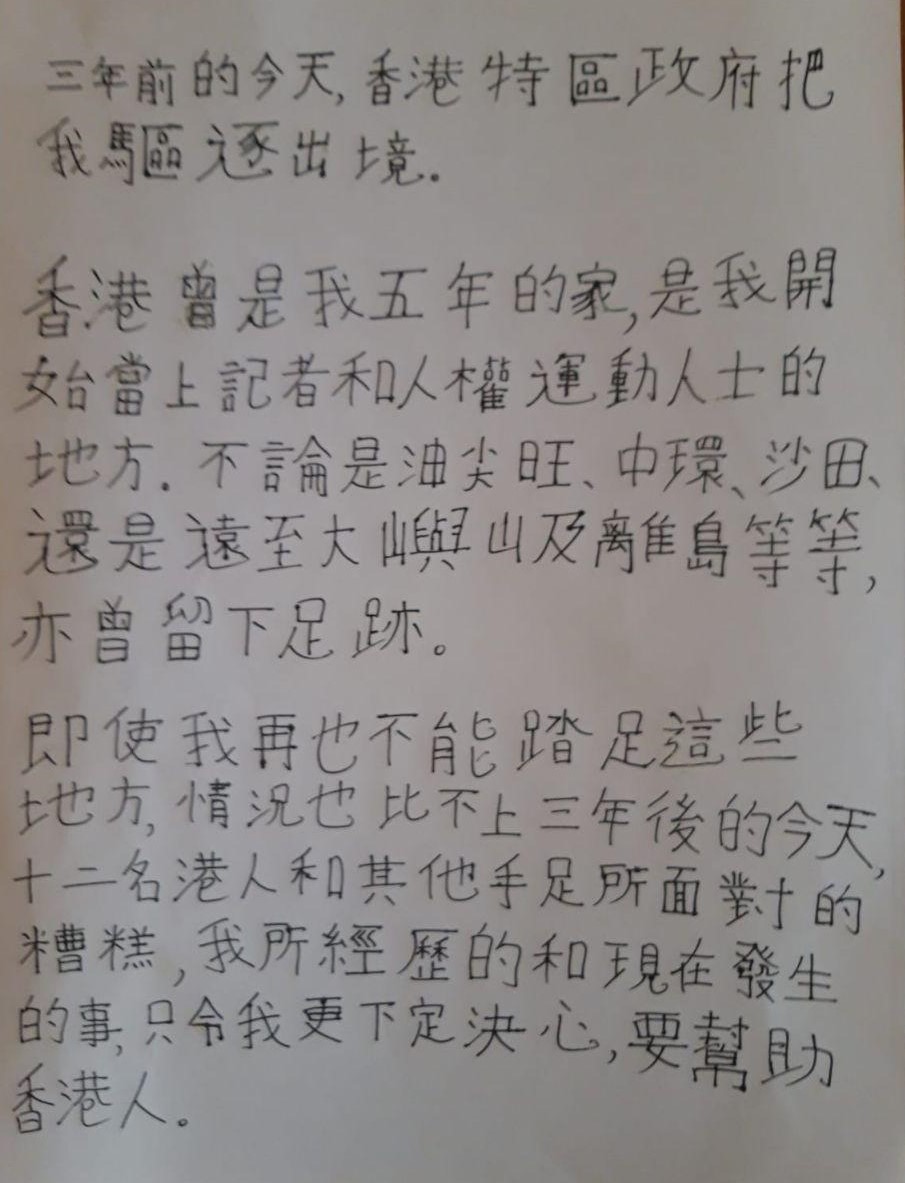 三年前的今天,香港特區政府把
我驅逐出境.
香港曾是我五年的家,是我開
始當上記者和人權運動人士的
地方.不論是油尖旺、中環、沙田、
還是遠至大嶼山及離島等等,
亦曾留下足跡。
即使我再也不能踏足這些
地方,情況也比不上三年後的今天,
十二名港人和其他手足所面對的
糟糕,我所經歷的和現在發生
的事,只令我更下定決心,要幫助
香港人。